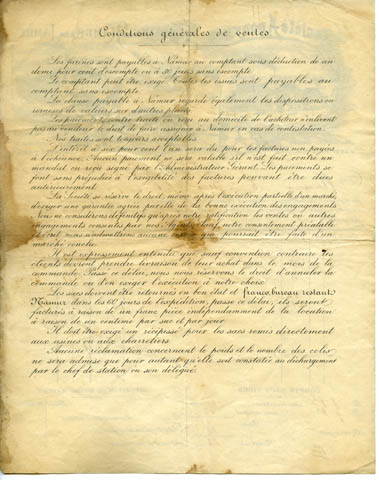 Conditions générales de ventes
Les farines sont payables à Namur au comptant sous déduction de un
demi pour cent d'escompte ou à 30 jours sans escompte
Le comptant peut être exigé. Toutes les issues sont payables au
comptant sans escompte
La clause payable à Namur regarde également les dispositions ou
remises de valeurs sur d'autres places
Les paiements contre traite ou reçu au domicile de l'acheteur n'enlèvent
pas au vendeur le droit de faire assigner à Namur en cas de contestation.
Nos traites sont toujours acceptables
L'intérêt à six pour cent l'an sera dû pour les factures non payées
à l'échéance. Aucun paiement ne sera valable s'il n'est fait contre un
mandat ou reçu signé par l'Administrateur Gérant. Les paiements se
font sans préjudice à l'exigibilité des factures pouvant être dues
antérieurement
La Société se réserve le droit, même après l'exécution partielle d'un marché,
d'exiger une garantie agréée par elle de la bonne exécution des engagements
Nous ne considérons définitifs qu'après notre ratification les ventes ou autres
engagements consentis par nos Agents. Sauf notre consentement préalable
par écrit nous n'admettrons aucune qui pourrait être faite d'un
marché conclu
Il est expressément entendu que sans convention contraire les
clients devront prendre livraison de leur achat dans le mois de la
commande. Passé ce délai, nous nous réservons le droit d'annuler la
commande ou d'en exiger l'exécution à notre choix
Les sacs devront être retournés en bon état et franco, bureau restant
Namur dans les 60 jours de l'expédition, passé ce délai, ils seront
facturés à raison de un franc pièce indépendamment de la location
à raison de un centime par sac et par jour
Il doit être exigé un récépissé pour les sacs remis directement
aux usines ou aux charretiers
Aucune réclamation concernant le poids et le nombre des colis
ne sera admise que pour autant qu'elle soit constatée au déchargement
par le chef de station ou son délégué.